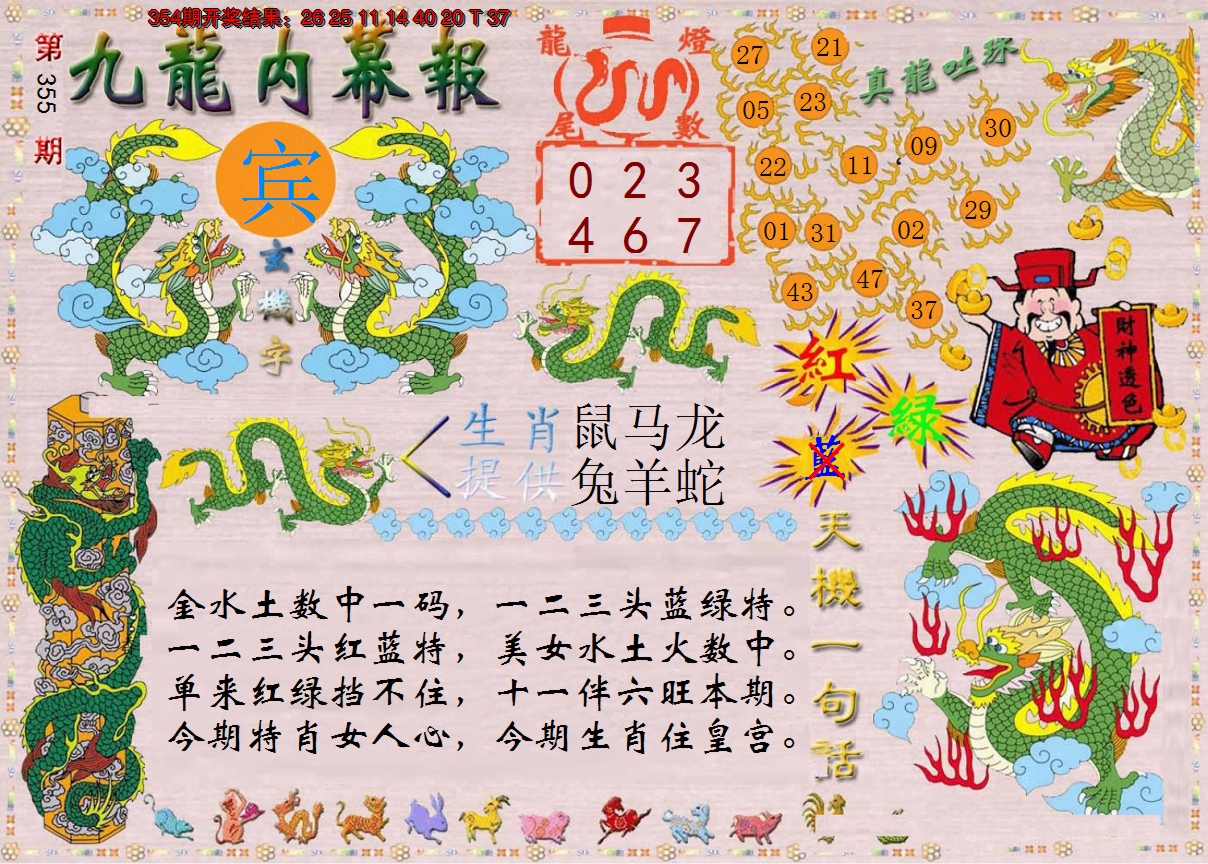 354期开奖结果：26 25 11 14 40 20 T 37
第355期
九龍内幕報
宾
玄機字
龍燈
尾數
0 2 3
4 6 7
真龍吐珠
27
21
05
23
22
11
09
30
01
31
02
29
43
47
37
財神透色
紅
綠
藍
生肖 鼠马龙
提供 兔羊蛇
天機一句話
金水土数中一码，一二三头蓝绿特。
一二三头红蓝特，美女水土火数中。
单来红绿挡不住，十一伴六旺本期。
今期特肖女人心，今期生肖住皇宫。